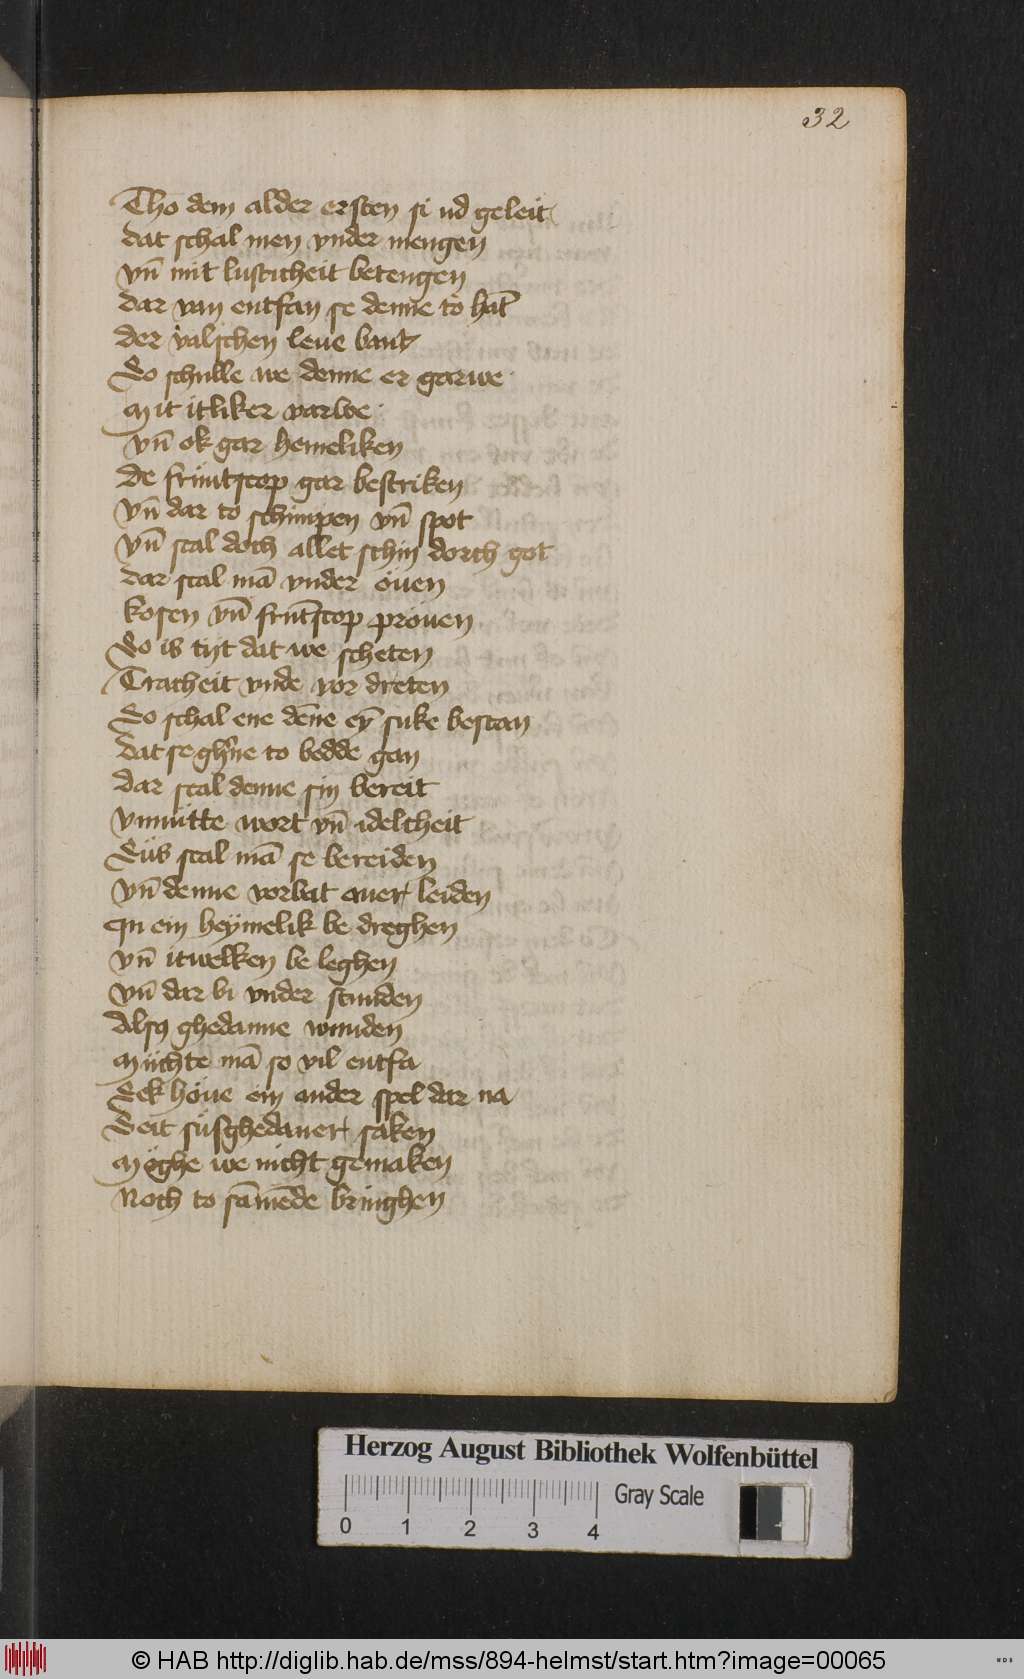 32
Tho dem alder ersten si ud geleit
dat schal men vnder mengen
vn̄ mit lusticheit betengen
dar van entfan se denne to hāt
der valschen leue bant
So schulle we denne er garwe
Mit itliker varwe
vn̄ ok gar hemeliken
De frimtscop gar bestriken
vn̄ dar to schimpen vn̄ spot
vn̄ scal doch allet schin dorch got
dar scal mā vnder öuen
kosen vn̄ frūtscop pröuen
So is tijt dat we scheten
Tracheit vnde vor dreten
So schal ene dēne eȳ suke bestan
dat se gh̄ne to bedde gan
dar scal denne sin bereit
vnnutte wort vn̄ idelcheit
Sus scal mā se bereiden
vn̄ denne vorbat auer leiden
In ein heymelik be dreghen
vn̄ itwelken be leghen
vn̄ dar bi vnder stunden
Alsꝯ ghedanne wunden
Müchte mā so vil entfa
Sek höue ein ander spel dar na
Seit susghedaner saken
Möghe we nicht gemaken
Noch to sāmēde bringhen
Herzog August Bibliothek Wolfenbüttel
0 1 2 3 4
Gray Scale
© HAB http://diglib.hab.de/mss/894-helmst/start.htm?image=00065